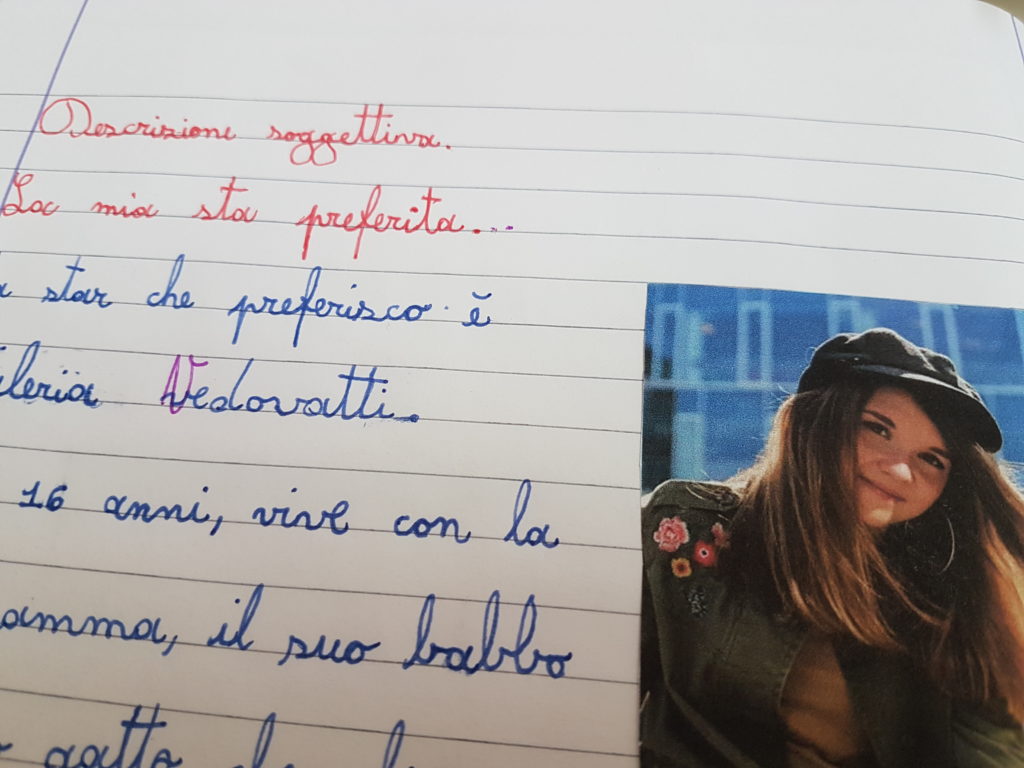 Descrizione soggettiva.
La mia sta preferita...
star che preferisco è
Vedovatti.
16 anni, vive con la
il suo babbo
gatto